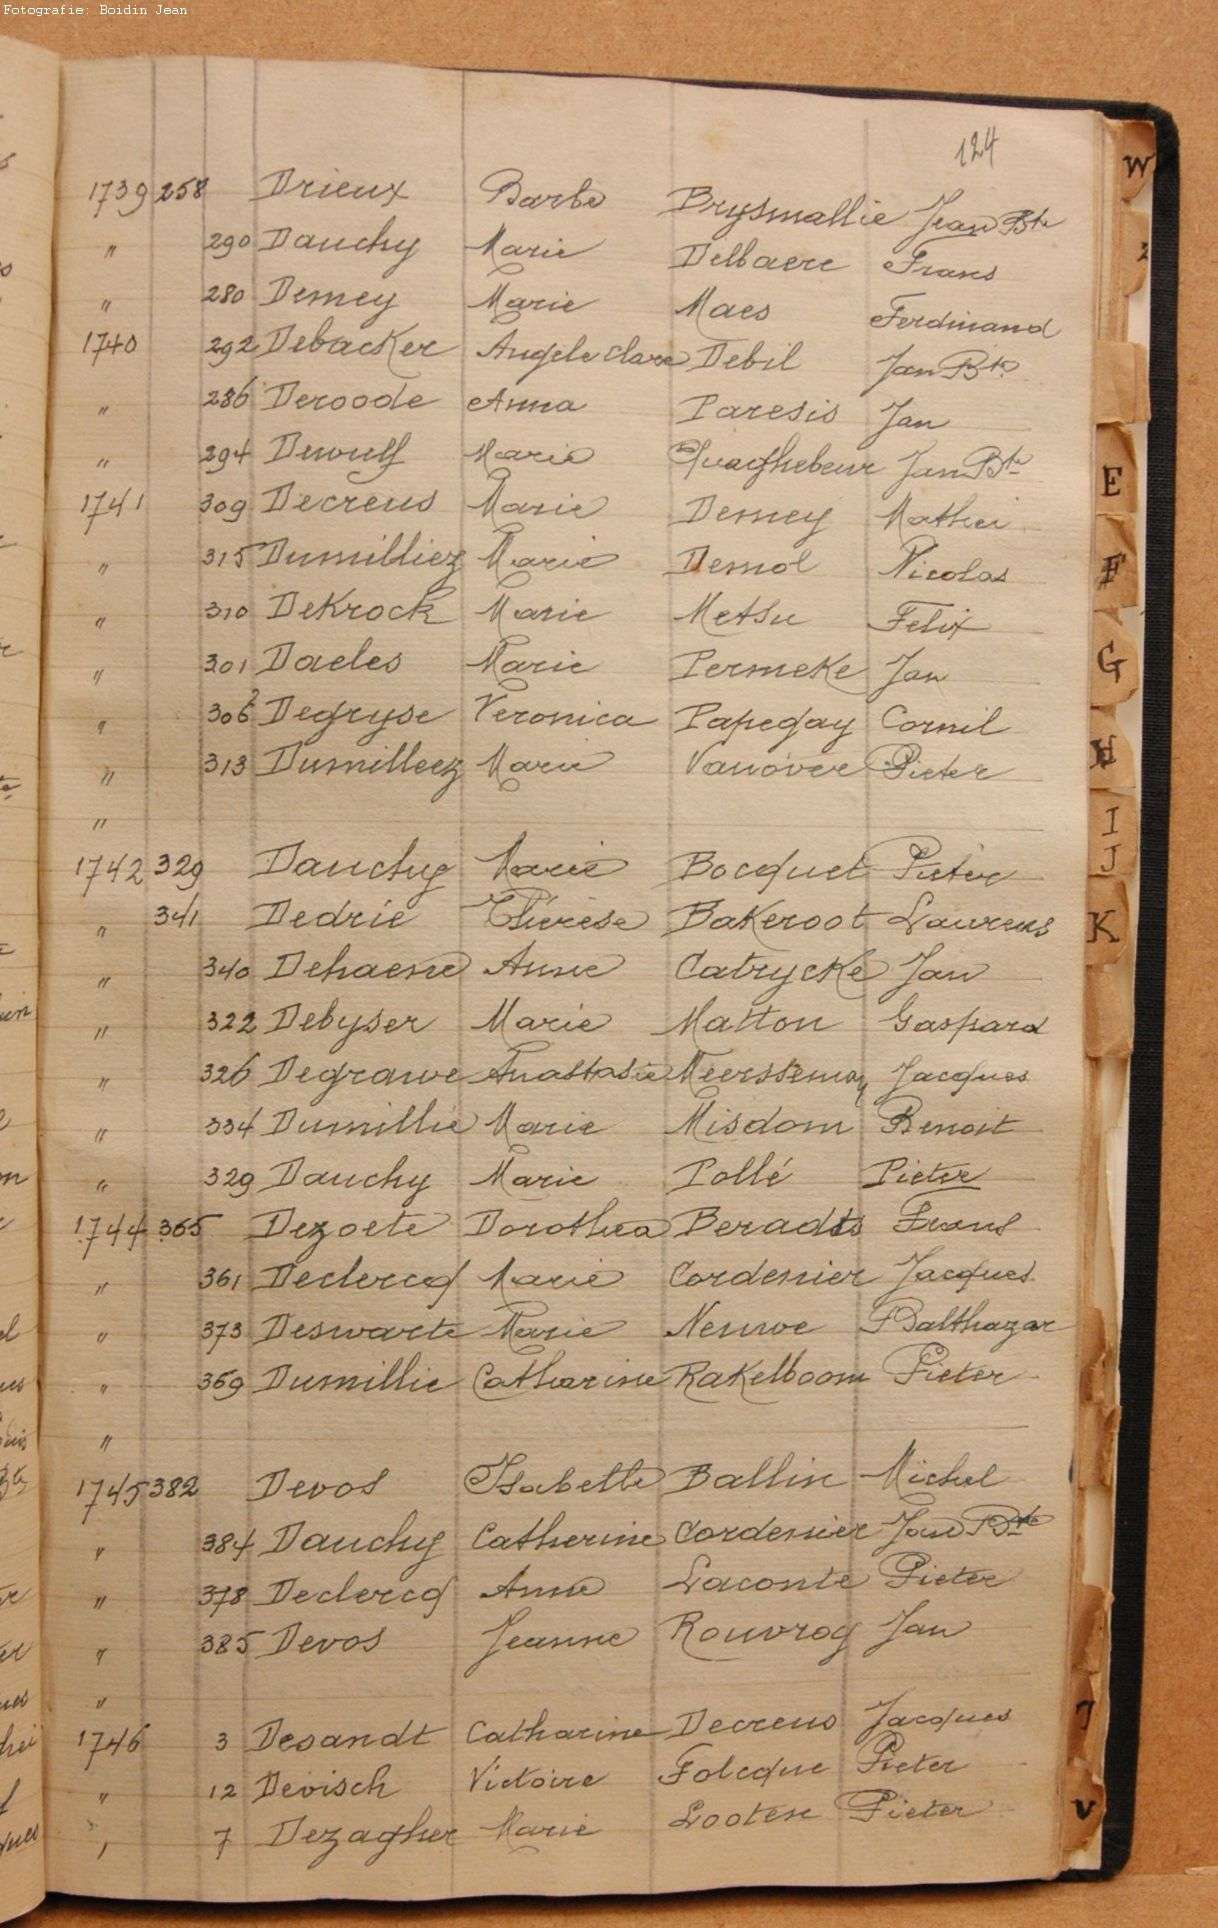 Fotografie: Boidin Jean
124
1739 258 Drieux Barbe Brysmallie Jean Bte
" 290 Dauchy Marie Delbaere Frans
" 280 Demey Marie Maes Ferdinand
1740 292 Debacker Angele Clare Debil Jan Bte
" 286 Deroode Anna Paresis Jan
" 294 Dewulf Marie Quaghebeur Jan Bte
1741 309 Decreus Marie Demey Mathei
" 315 Dumilliez Marie Demol Nicolas
" 310 DeKrock Marie Metsu Felix
" 301 Daeles Marie Permeke Jan
" 306 Degryse Veronica Papegay Cornil
" 313 Dumilleez Marie Vanover Pieter
"
1742 329 Dauchy Marie Bocquet Pieter
" 341 Dedrie Thérèse Bakeroot Laurens
" 340 Dehaene Anne Catrycke Jan
" 322 Debyser Marie Matton Gaspard
" 326 Degrawe Anastasie Meersseman Jacques
" 334 Dumillie Marie Misdom Benoit
" 329 Dauchy Marie Pollé Pieter
1744 365 Dezoete Dorothea Beradts Frans
" 361 Declercq Marie Cordenier Jacques
" 373 Deswarte Marie Neuwe Balthazar
" 369 Dumillie Catharine Rakelboom Pieter
"
1745 382 Devos Isabelle Ballin Michel
" 384 Dauchy Catherine Cordenier Jan Bte
" 378 Declercq Anne Laconte Pieter
" 385 Devos Jeanne Rouvroy Jan
"
1746 3 Desandt Catharine Decreus Jacques
" 12 Devisch Victoire Folcque Pieter
" 7 Dezagher Marie Looten Pieter
W
E
F
G
H
I
J
K
V